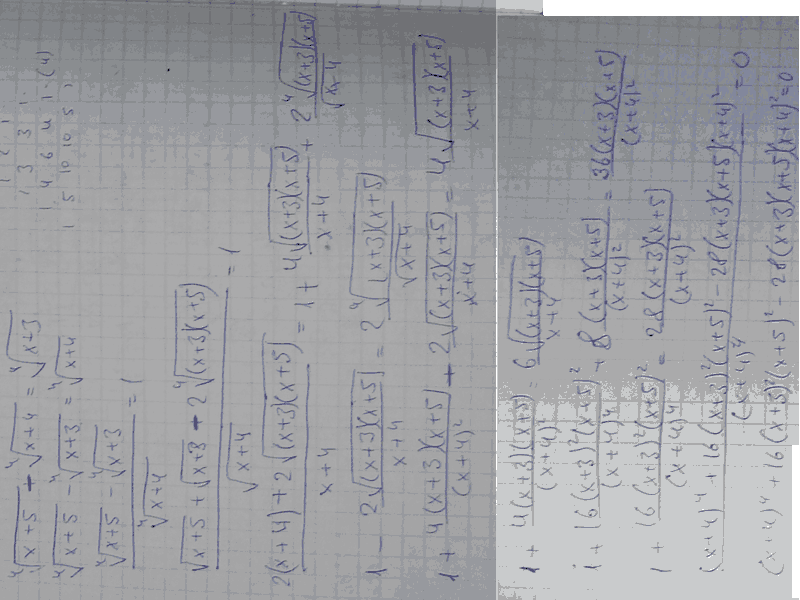 1 2 1
1 3 3 1
1 4 6 4 1 (4)
1 5 10 10 5 1
∜(x+5) - ∜(x+4) = ∜(x+3)
∜(x+5) - ∜(x+3) = ∜(x+4)
(∜(x+5) - ∜(x+3)) / ∜(x+4) = 1
(√(x+5) + √(x+3) - 2∜((x+3)(x+5))) / √(x+4) = 1
(2(x+4) + 2√((x+3)(x+5))) / (x+4) = 1 + 4√((x+3)(x+5)) / (x+4) + 2 ∜((x+3)(x+5)) / √(x+4)
1 - 2√((x+3)(x+5)) / (x+4) = 2 ∜((x+3)(x+5)) / √(x+4)
1 + 4(x+3)(x+5) / (x+4)² + 2√((x+3)(x+5)) / (x+4) = 4√((x+3)(x+5)) / (x+4)
1 + 4(x+3)(x+5) / (x+4)² = 6√((x+3)(x+5)) / (x+4)
1 + 16(x+3)²(x+5)² / (x+4)⁴ + 8(x+3)(x+5) / (x+4)² = 36(x+3)(x+5) / (x+4)²
1 + 16(x+3)²(x+5)² / (x+4)⁴ = 28(x+3)(x+5) / (x+4)²
((x+4)⁴ + 16(x+3)²(x+5)² - 28(x+3)(x+5)(x+4)²) / (x+4)⁴ = 0
(x+4)⁴ + 16(x+3)²(x+5)² - 28(x+3)(x+5)(x+4)² = 0